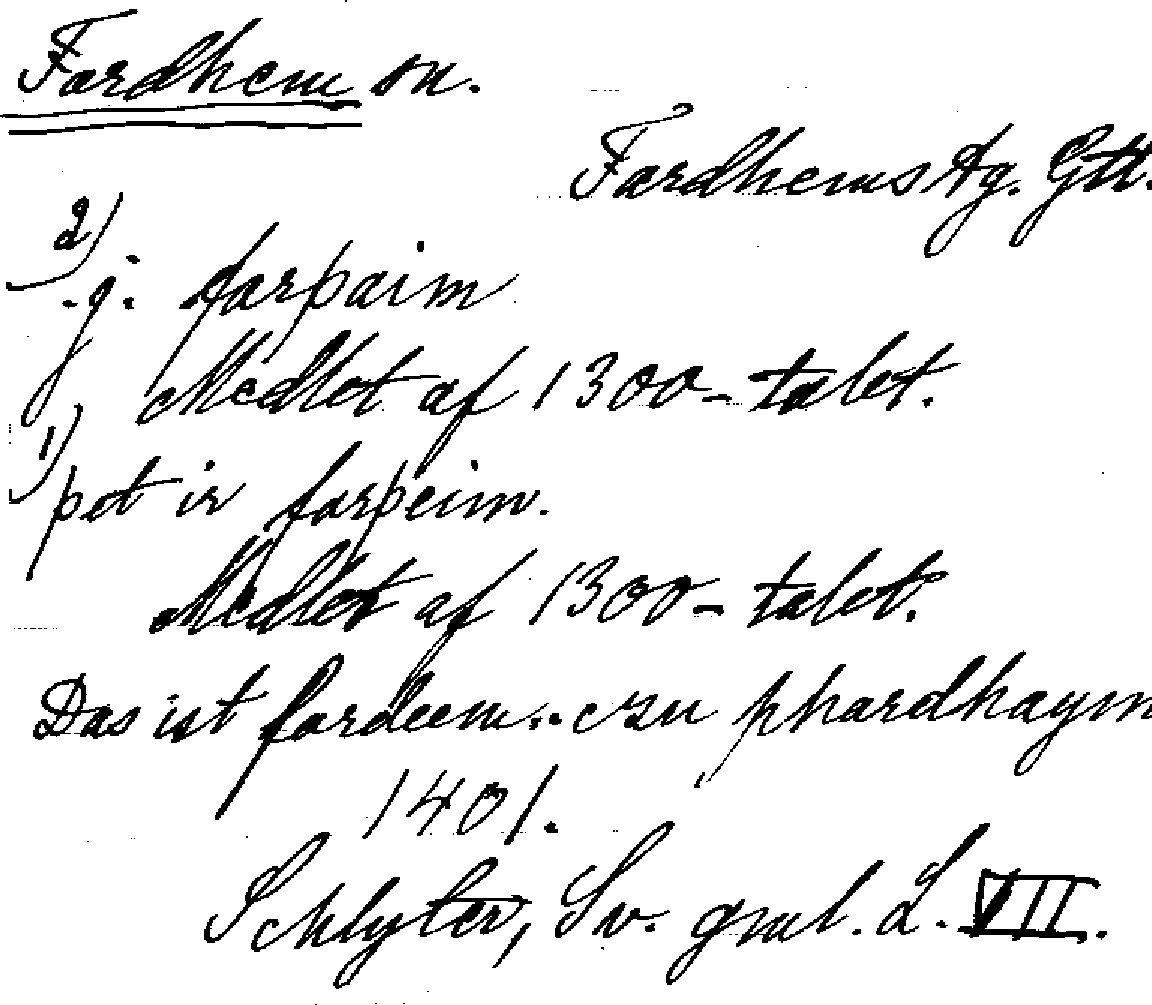 Fardhem sn.
Fardhems tg. Gtl.
2)
.j. farþaim
Medlet af 1300-talet.
1)
þet ir farþeim.
Medlet af 1300-talet.
Das ist fardeem.. czu phardhaym
1401.
Schlyter, Sv. gml. L. VII.